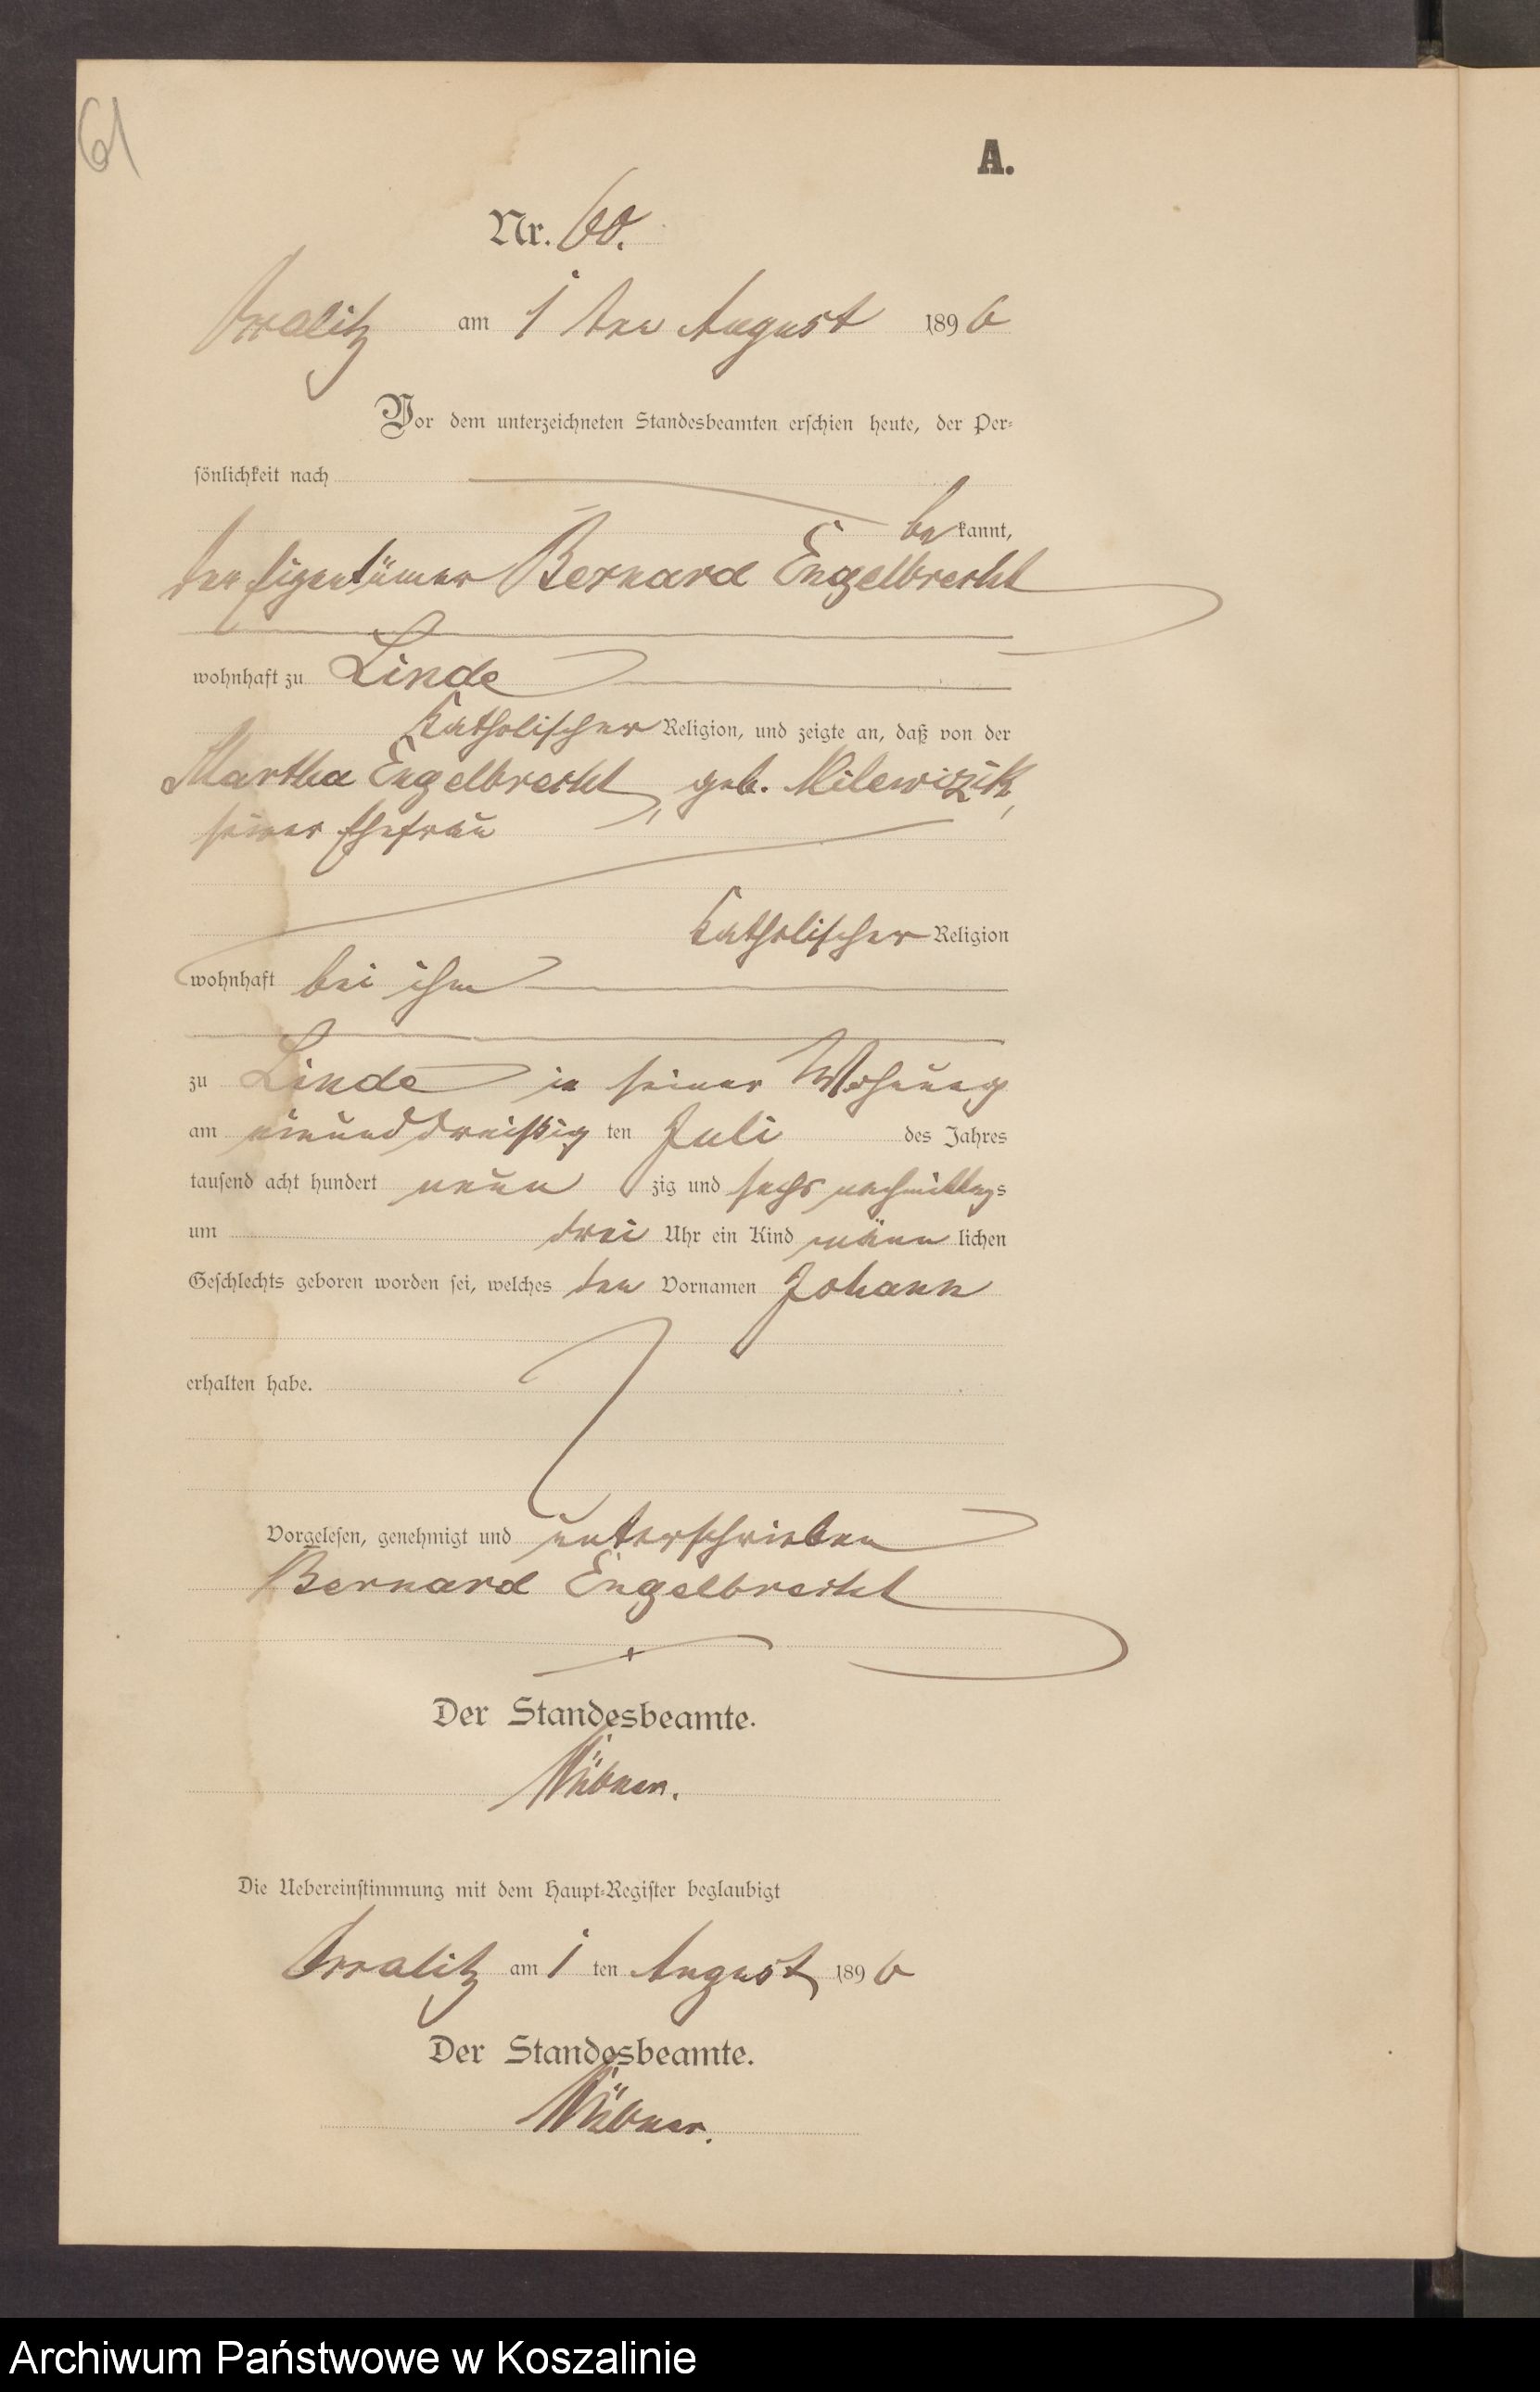 61
A.
Nr. 60.
am 1 ten August 1896
Vor dem unterzeichneten Standesbeamten erschien heute, der Per-
sönlichkeit nach
bekannt,
der Eigentümer Bernard Engelbrecht
wohnhaft zu Linde
katholischer Religion, und zeigte an, daß von der
Martha Engelbrecht, geb.
seiner Ehefrau
katholischer Religion
wohnhaft bei ihm
zu Linde in seiner Wohnung
am einunddreißig ten Juli des Jahres
tausend acht hundert neun zig und sechs nachmittags
um drei Uhr ein Kind männlichen
Geschlechts geboren worden sei, welches den Vornamen Johann
erhalten habe.
Vorgelesen, genehmigt und unterschrieben
Bernard Engelbrecht
Der Standesbeamte.
Die Uebereinstimmung mit dem Haupt-Register beglaubigt
am 1 ten August 1896
Der Standesbeamte.
Archiwum Państwowe w Koszalinie